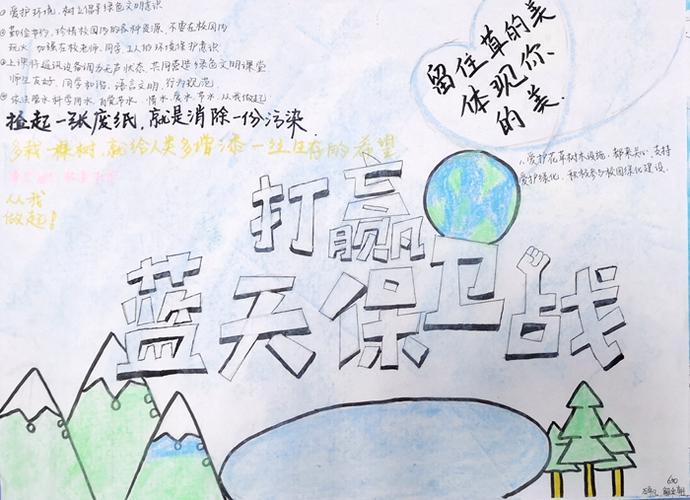 爱护环境，树立倡导绿色文明意识
勤俭节约，珍惜校园内的各种资源，不要在校园内
玩火，加强在校老师、同学、工人的环境保护意识
上课将通讯设备调为无声状态，共同营造绿色文明课堂
师生友好，同学和谐，语言文明，行为规范
节水，惜水、爱水、节水，从我做起
捡起一张废纸，就是消除一份污染
多栽一棵树，就给人类多增添一丝生存的希望
从我
做起！
留住草的美
体现你
的美．
爱护花草树木设施，都来关心，支持
爱护绿化，积极参与校园绿化建设．
打赢
蓝天保卫战